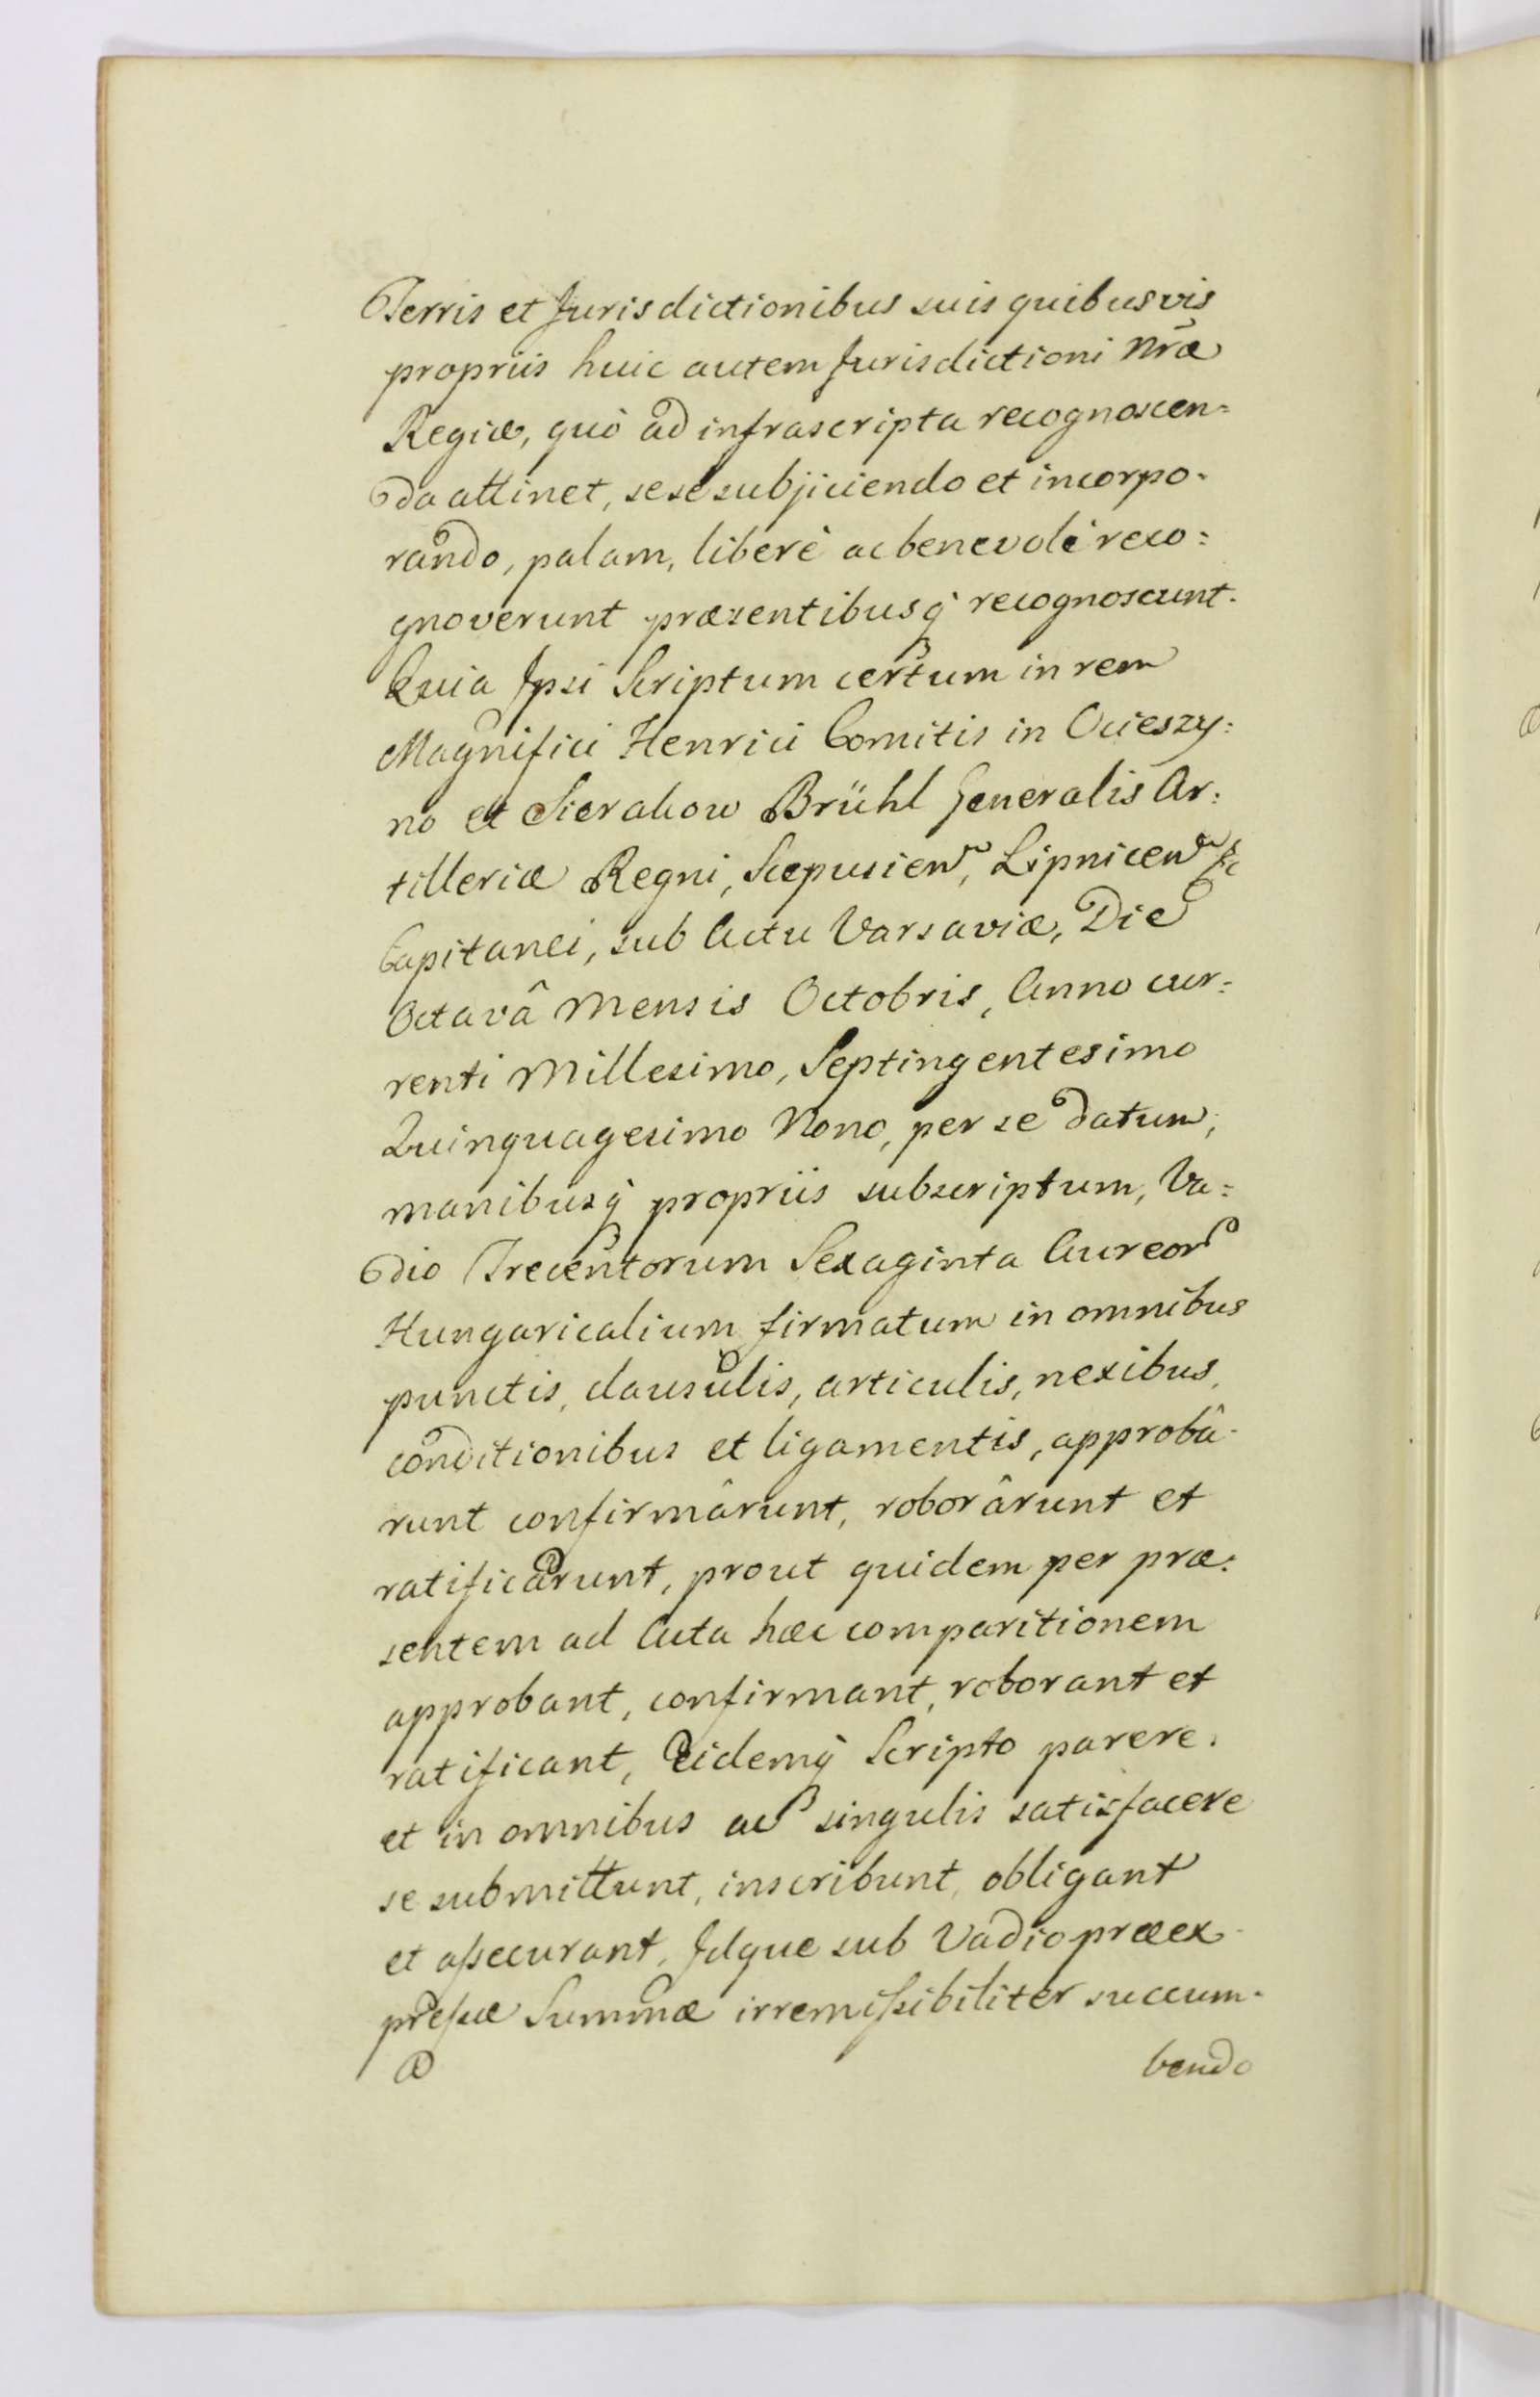 Terris et Jurisdictionibus suis quibusvis
propriis huic autem Jurisdictioni Nrã
Regiæ, quò ad infrascripta recognoscen=
da attinet, sese subjiciendo et incorpo-
rando, palam, liberè ac benevolè reco=
gnoverunt præsentibusq̀ recognoscunt.
Quia Ipsi Scriptum certum in rem
Magnifici Henrici Comitis in Ocieszy=
no et Sierakow Brühl Generalis Ar:
tilleriæ Regni, Scepusien, Lipnicen &c
Capitanei, sub Actu Varsaviæ, Die
Octavâ Mensis Octobris, Anno cur:
renti Millesimo, Septingentesimo
Quinquagesimo Nono, per se datum,
manibusq̀ propriis subscriptum, Va=
dio Trecentorum Sexaginta Aureor
Hungaricalium firmatum in omnibus
punctis, clausulis, articulis, nexibus,
conditionibus et ligamentis, approbâ-
runt confirmârunt, roborârunt et
ratificârunt, prout quidem per præ:
sentem ad Acta hæc comparitionem
approbant, confirmant, roborant et
ratificant, Eidemq̀ Scripto parere,
et in omnibus ac singulis satisfacere
se submittunt, inscribunt, obligant
et assecurant, Idque sub Vadio præex-
pressæ Summæ irremissibiliter succum-
bendo